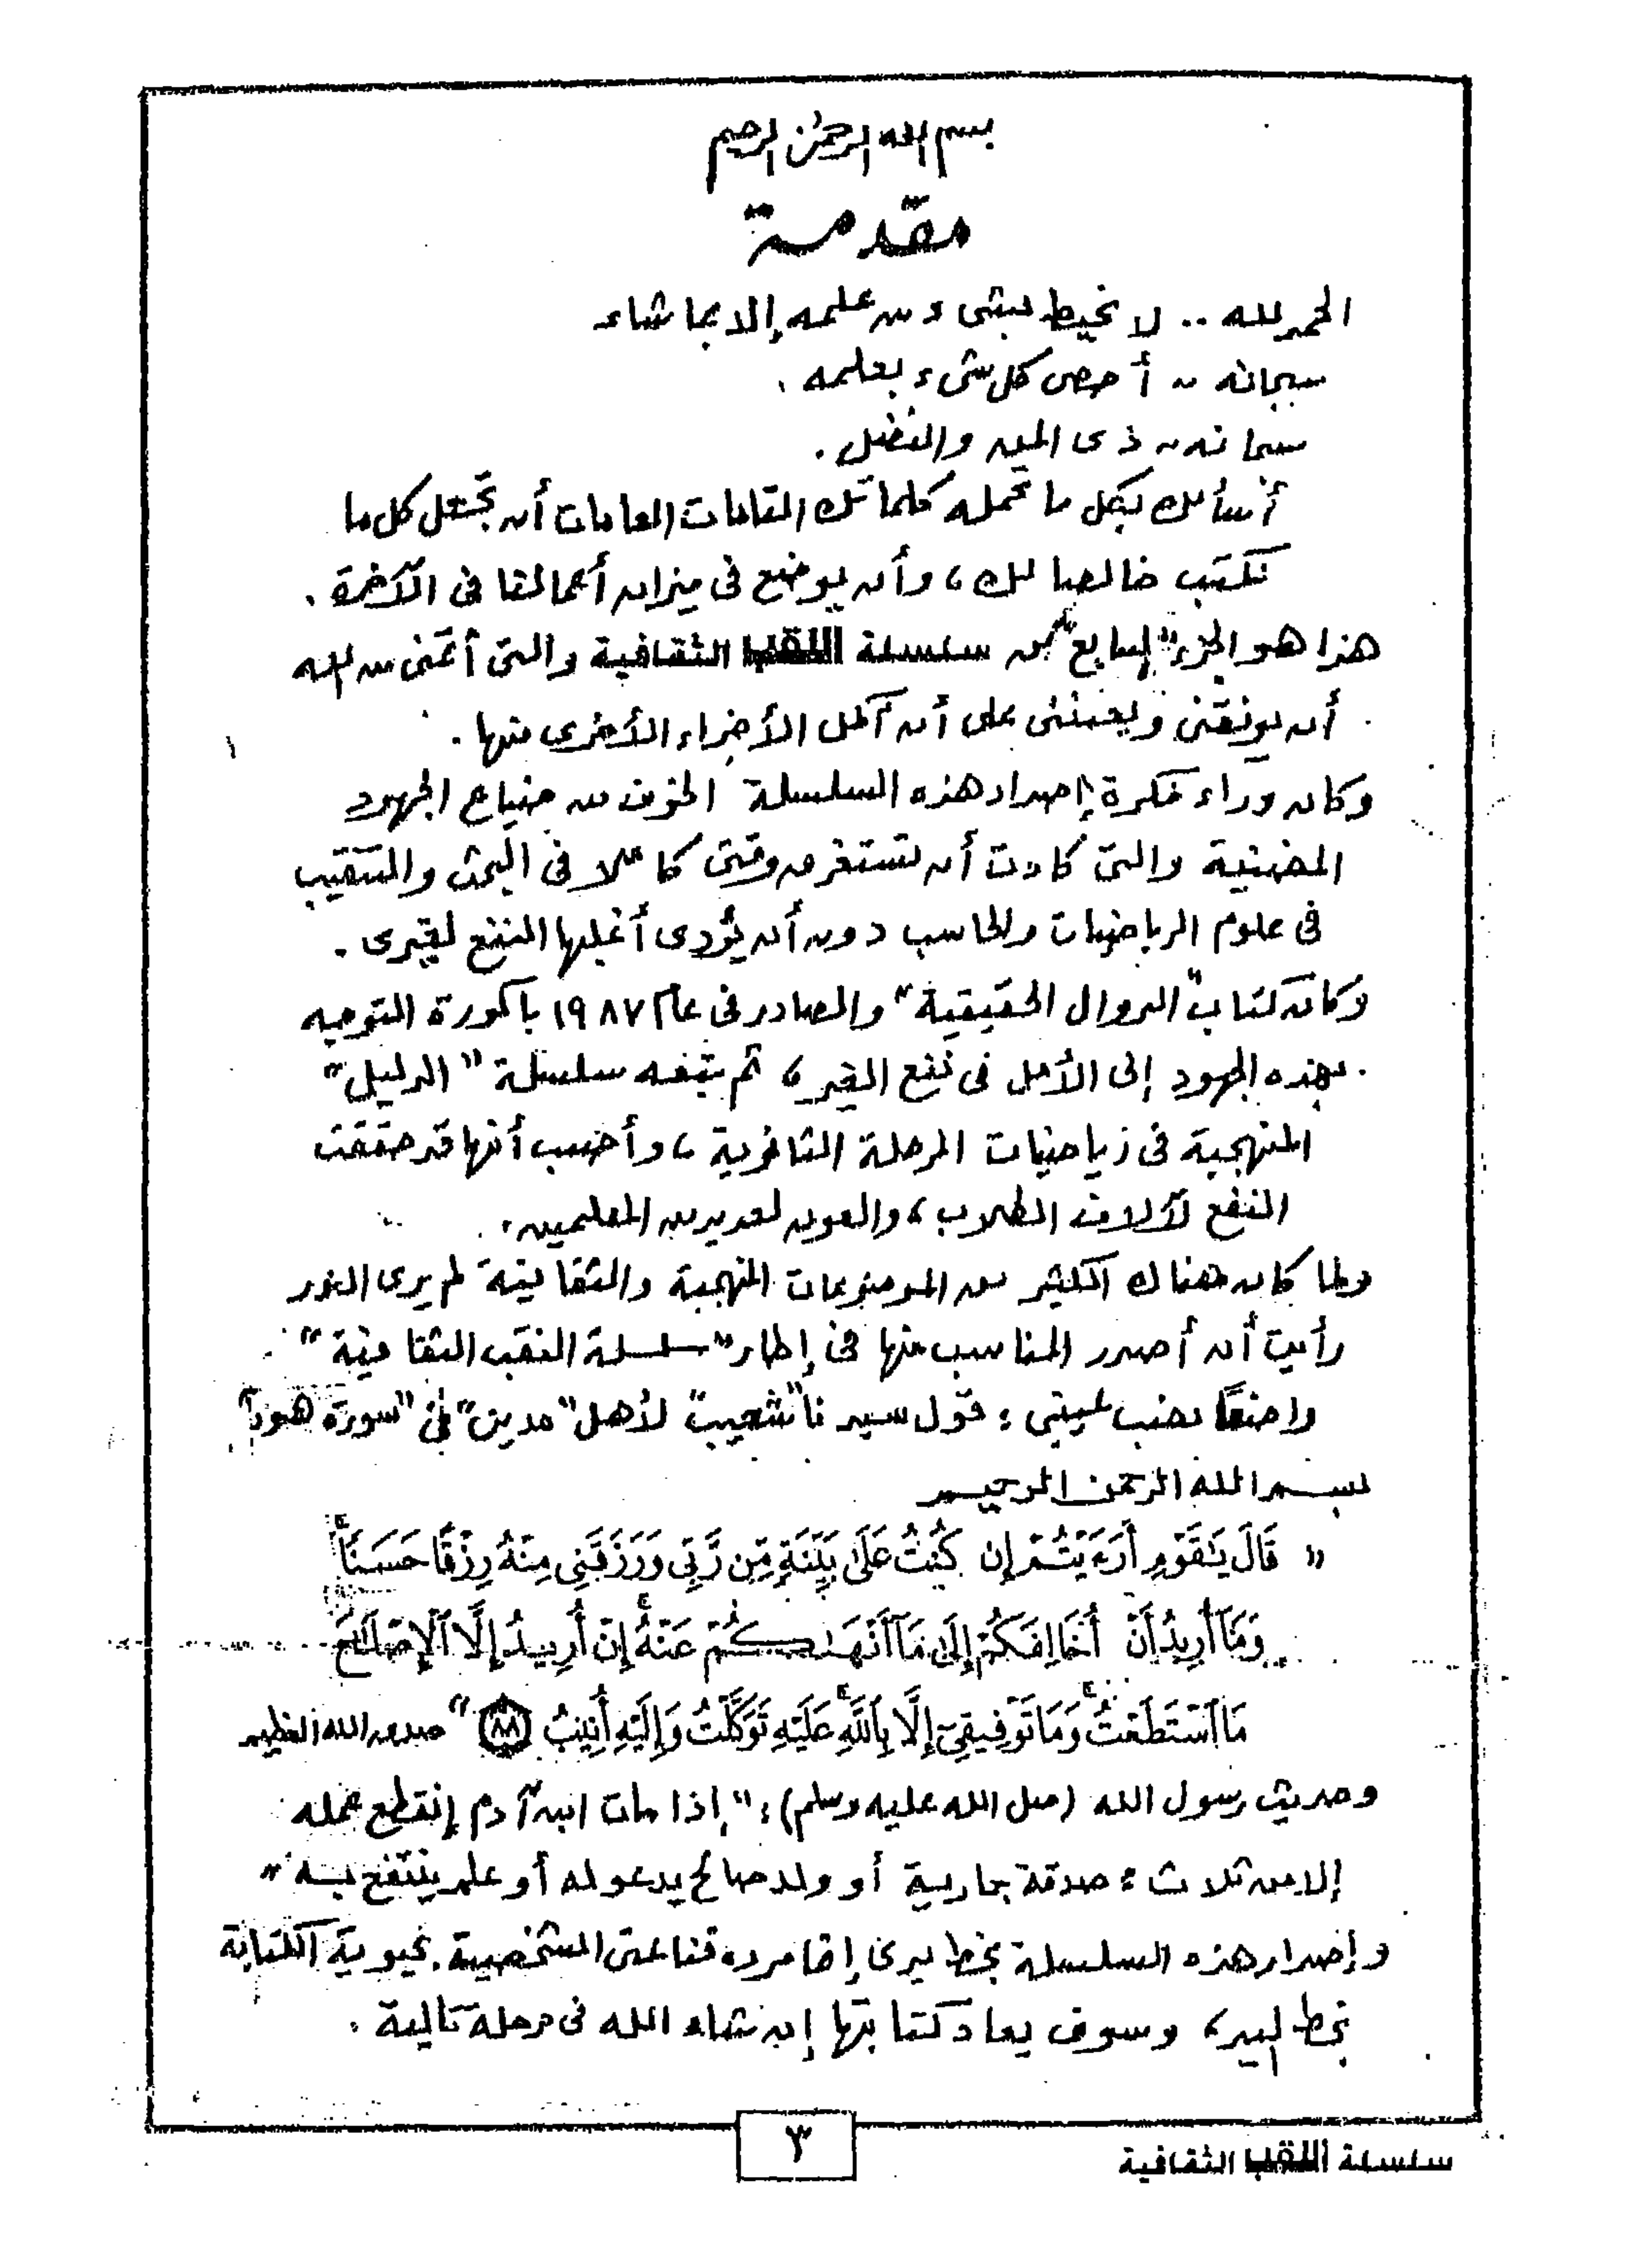 بسم الله الرحمن الرحيم
مقدمة
الحمد لله .. لا نحيط بشىء من علمه إلا بما شاء
سبحانه .. أحصى كل شىء بعلمه .
سبحانه .. ذى المن والفضل .
أسألك بكل ما تحمله كلماتك التامات العامات أن تجعل كل ما
نكتب خالصا لك ، وأن يوضع فى ميزان أعمالنا فى الآخرة .
هذا هو الجزء "السابع" من سلسلة النقب الثقافية والتى أتمنى من الله
أن يوفقنى ويعيننى على أن أكمل الأجزاء الأخرى منها .
وكان وراء فكرة إصدار هذه السلسلة الخوف من ضياع الجهود
المضنية والتى كادت أن تستغرق وقتى كاملا فى البحث والتنقيب
فى علوم الرياضيات والحاسب دون أن يؤدى أغلبها النفع لغيرى .
وكان كتاب "الدوال الحقيقية" والصادر فى عام ١٩٨٧ باكورة التوجيه
بهذه الجهود إلى الأمل فى نفع الغير ، ثم تبعه سلسلة "الدليل"
المنهجية فى رياضيات المرحلة الثانوية ، وأحسب أنها قد حققت
النفع لآلاف الطلاب ، والعون لعديد من المعلمين .
ولما كان هناك الكثير من الموضوعات المنهجية والثقافية لم يرى النور
رأيت أن أصدر المناسب منها فى إطار "سلسلة النقب الثقافية"
واضعًا نصب عينى : قول سيدنا "شعيب" لأهل "مدين" فى "سورة هود"
بسم الله الرحمن الرحيم
" قَالَ يَٰقَوْمِ أَرَءَيْتُمْ إِن كُنتُ عَلَىٰ بَيِّنَةٍ مِّن رَّبِّى وَرَزَقَنِى مِنْهُ رِزْقًا حَسَنًا ۚ
وَمَآ أُرِيدُ أَنْ أُخَالِفَكُمْ إِلَىٰ مَآ أَنْهَىٰكُمْ عَنْهُ ۚ إِنْ أُرِيدُ إِلَّا ٱلْإِصْلَٰحَ
مَا ٱسْتَطَعْتُ ۚ وَمَا تَوْفِيقِىٓ إِلَّا بِٱللَّهِ ۚ عَلَيْهِ تَوَكَّلْتُ وَإِلَيْهِ أُنِيبُ ٨٨ " صدق الله العظيم
وحديث رسول الله (صلى الله عليه وسلم) : "إذا مات ابن آدم إنقطع عمله
إلا من ثلاث : صدقة جارية أو ولد صالح يدعو له أو علم ينتفع به"
وإصدار هذه السلسلة بخط يدى إنما مرده قناعتى الشخصية بحيوية الكتابة
بخط اليد ، وسوف يعاد كتابتها إن شاء الله فى مرحلة تالية .
٣
سلسلة النقب الثقافية